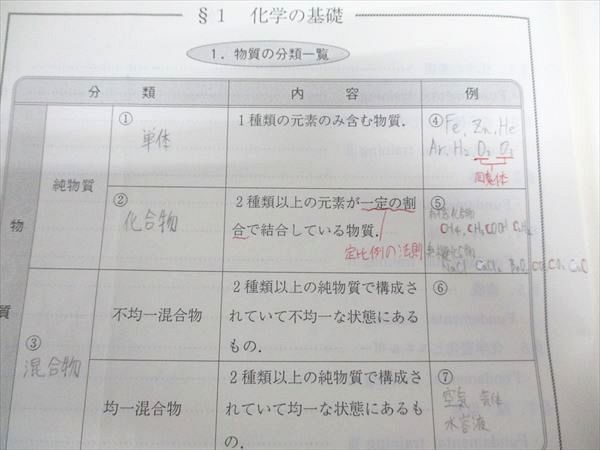 §1 化学の基礎
1. 物質の分類一覧
分類 内容 例
物質
純物質
①
単体
1種類の元素のみ含む物質.
④
Fe, Zn, He
Ar, H₂ O₂ O₃
同素体
②
化合物
2種類以上の元素が一定の割
合で結合している物質.
定比例の法則
⑤
有機化合物
CH₄, CH₃COOH
無機化合物
NaCl CaCl₂
③
混合物
不均一混合物
2種類以上の純物質で構成さ
れていて不均一な状態にある
もの.
⑥
均一混合物
2種類以上の純物質で構成さ
れていて均一な状態にあるも
の.
⑦
空気
水溶液